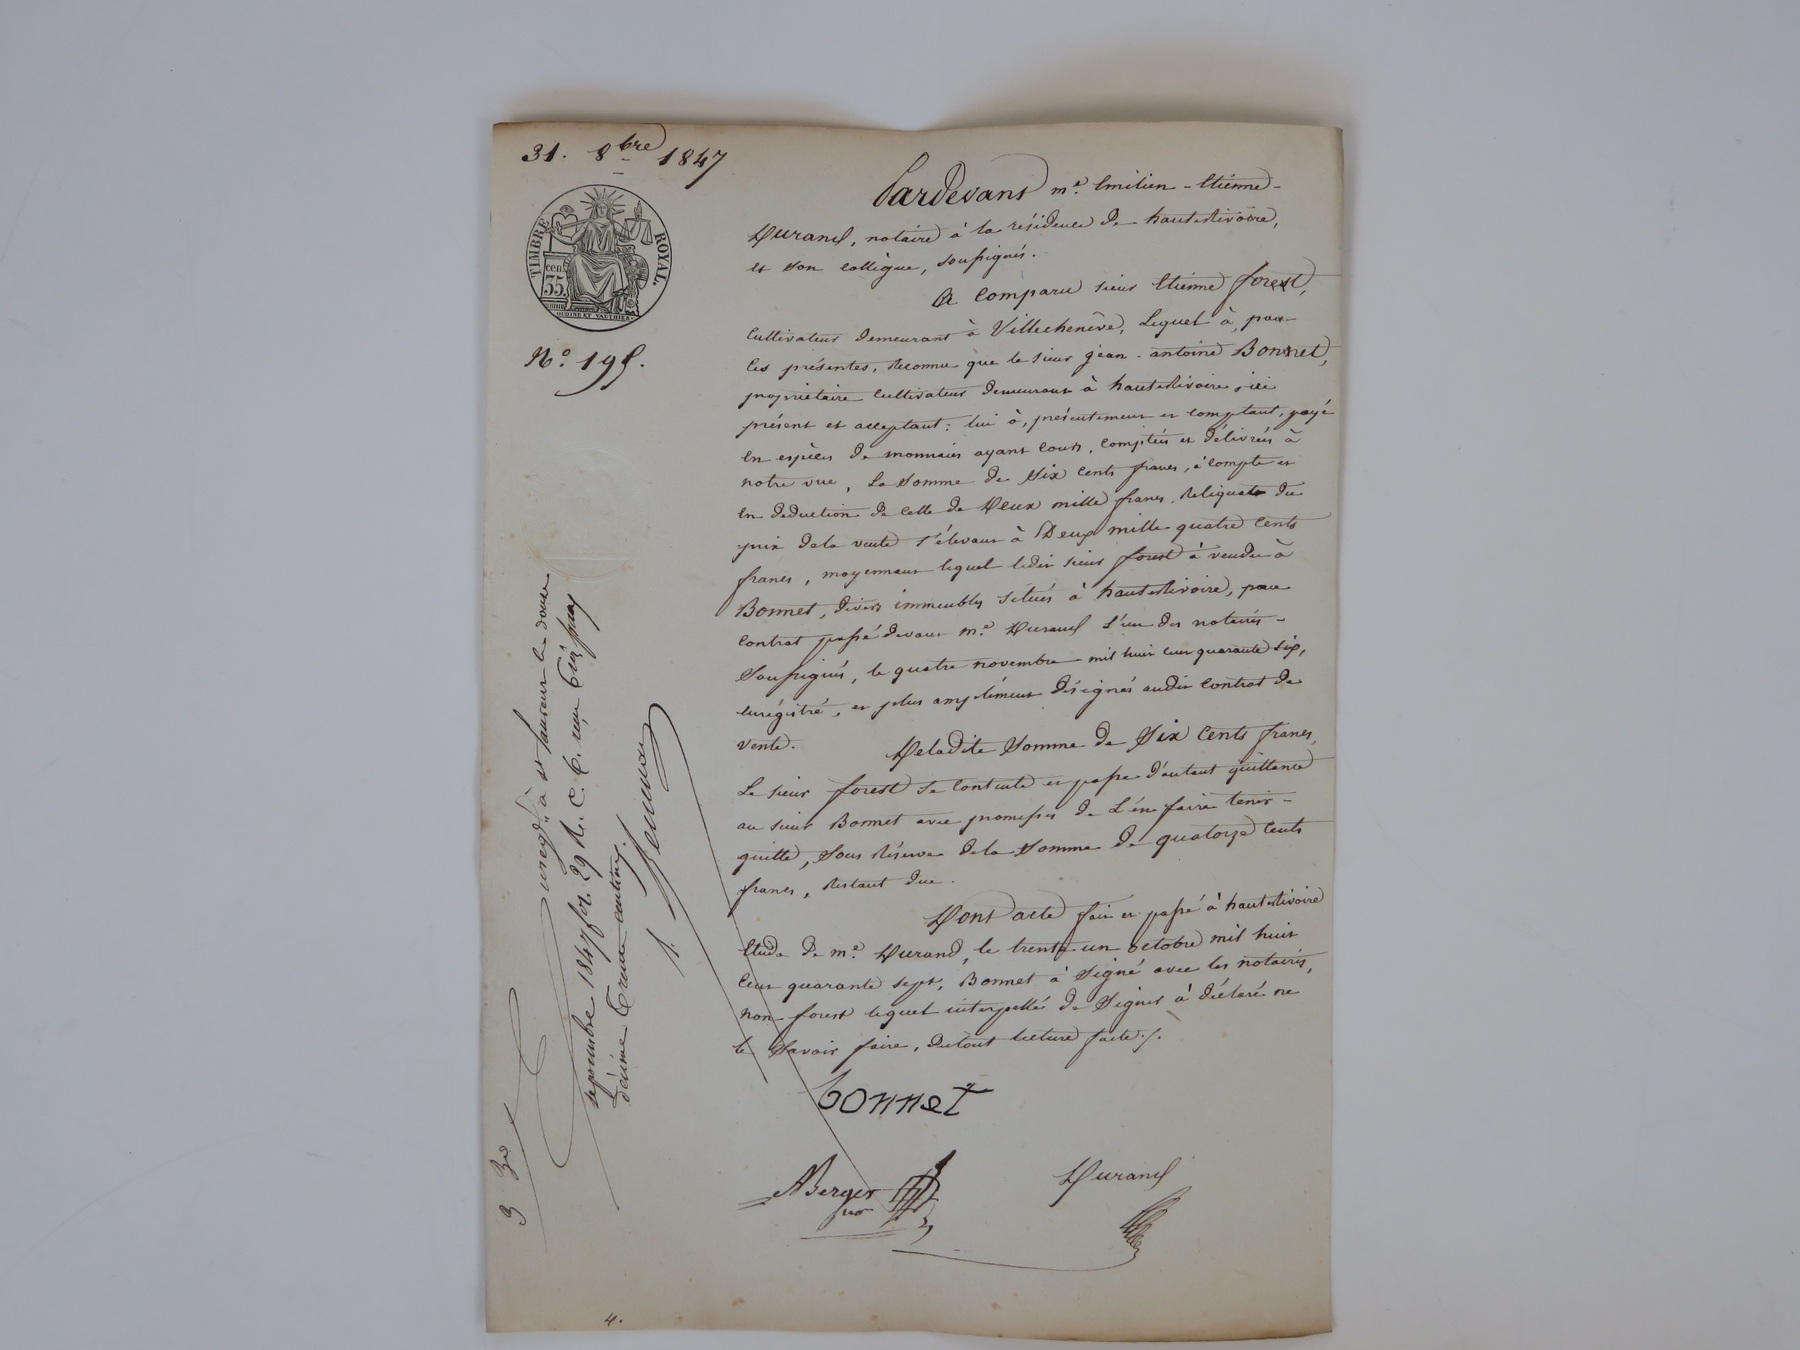 31. 8bre 1847
TIMBRE ROYAL.
cen.
35.
OUDINE ET VAUTHIER.
N.o 195.
Pardevant m.e Emilien - Etienne -
Durand, notaire à la résidence de hauterivoire,
et son collègue, soussignés.
A Comparu sieur Etienne forest,
Cultivateur demeurant à Villechenève, Lequel à, par
Ces présentes, Reconnu que le sieur jean - antoine Bonnet,
propriétaire Cultivateur demeurant à hauterivoire, ici
présent et acceptant: lui à, présentement et comptant, payé
En espèces de monnaies ayant cours, comptées et délivrées à
notre vue, La Somme de Six Cents francs, à compte et
En deduction de celle de Deux mille francs, Reliquat du
prix dela vente s'élevant à Deux mille quatre Cents
francs, moyennant lequel ledit sieur forest à vendu à
Bonnet, divers immeubles situés à hauterivoire, par
Contrat passé devant m.e Durand l'un des notaires -
Soussignés, le quatre novembre mil huit cent quarante six,
Enrégistré, et plus amplément désignés audit Contrat de
vente.
Deladite Somme de Six Cents francs,
Le sieur forest se Contente et passe d'autant quittance
au sieur Bonnet avec promesses de L'en faire tenir -
quitte, Sous Réserve dela Somme de quatorze Cents
francs, Restant due.
Dont acte fait et passé à hauterivoire
Etude de m.e Durand, le trente un octobre mil huit
Cent quarante sept, Bonnet à Signé avec les notaires,
non forest lequel interpellé de Signer à déclaré ne
le Savoir faire, Detout lecture faite./.
bonnet
ABerger
Durand
Enregé. à st Laurent le douze
novembre 1847 fo. 29 R. C. 6. reçu trois francs
décime trente centimes.
3 30
4.